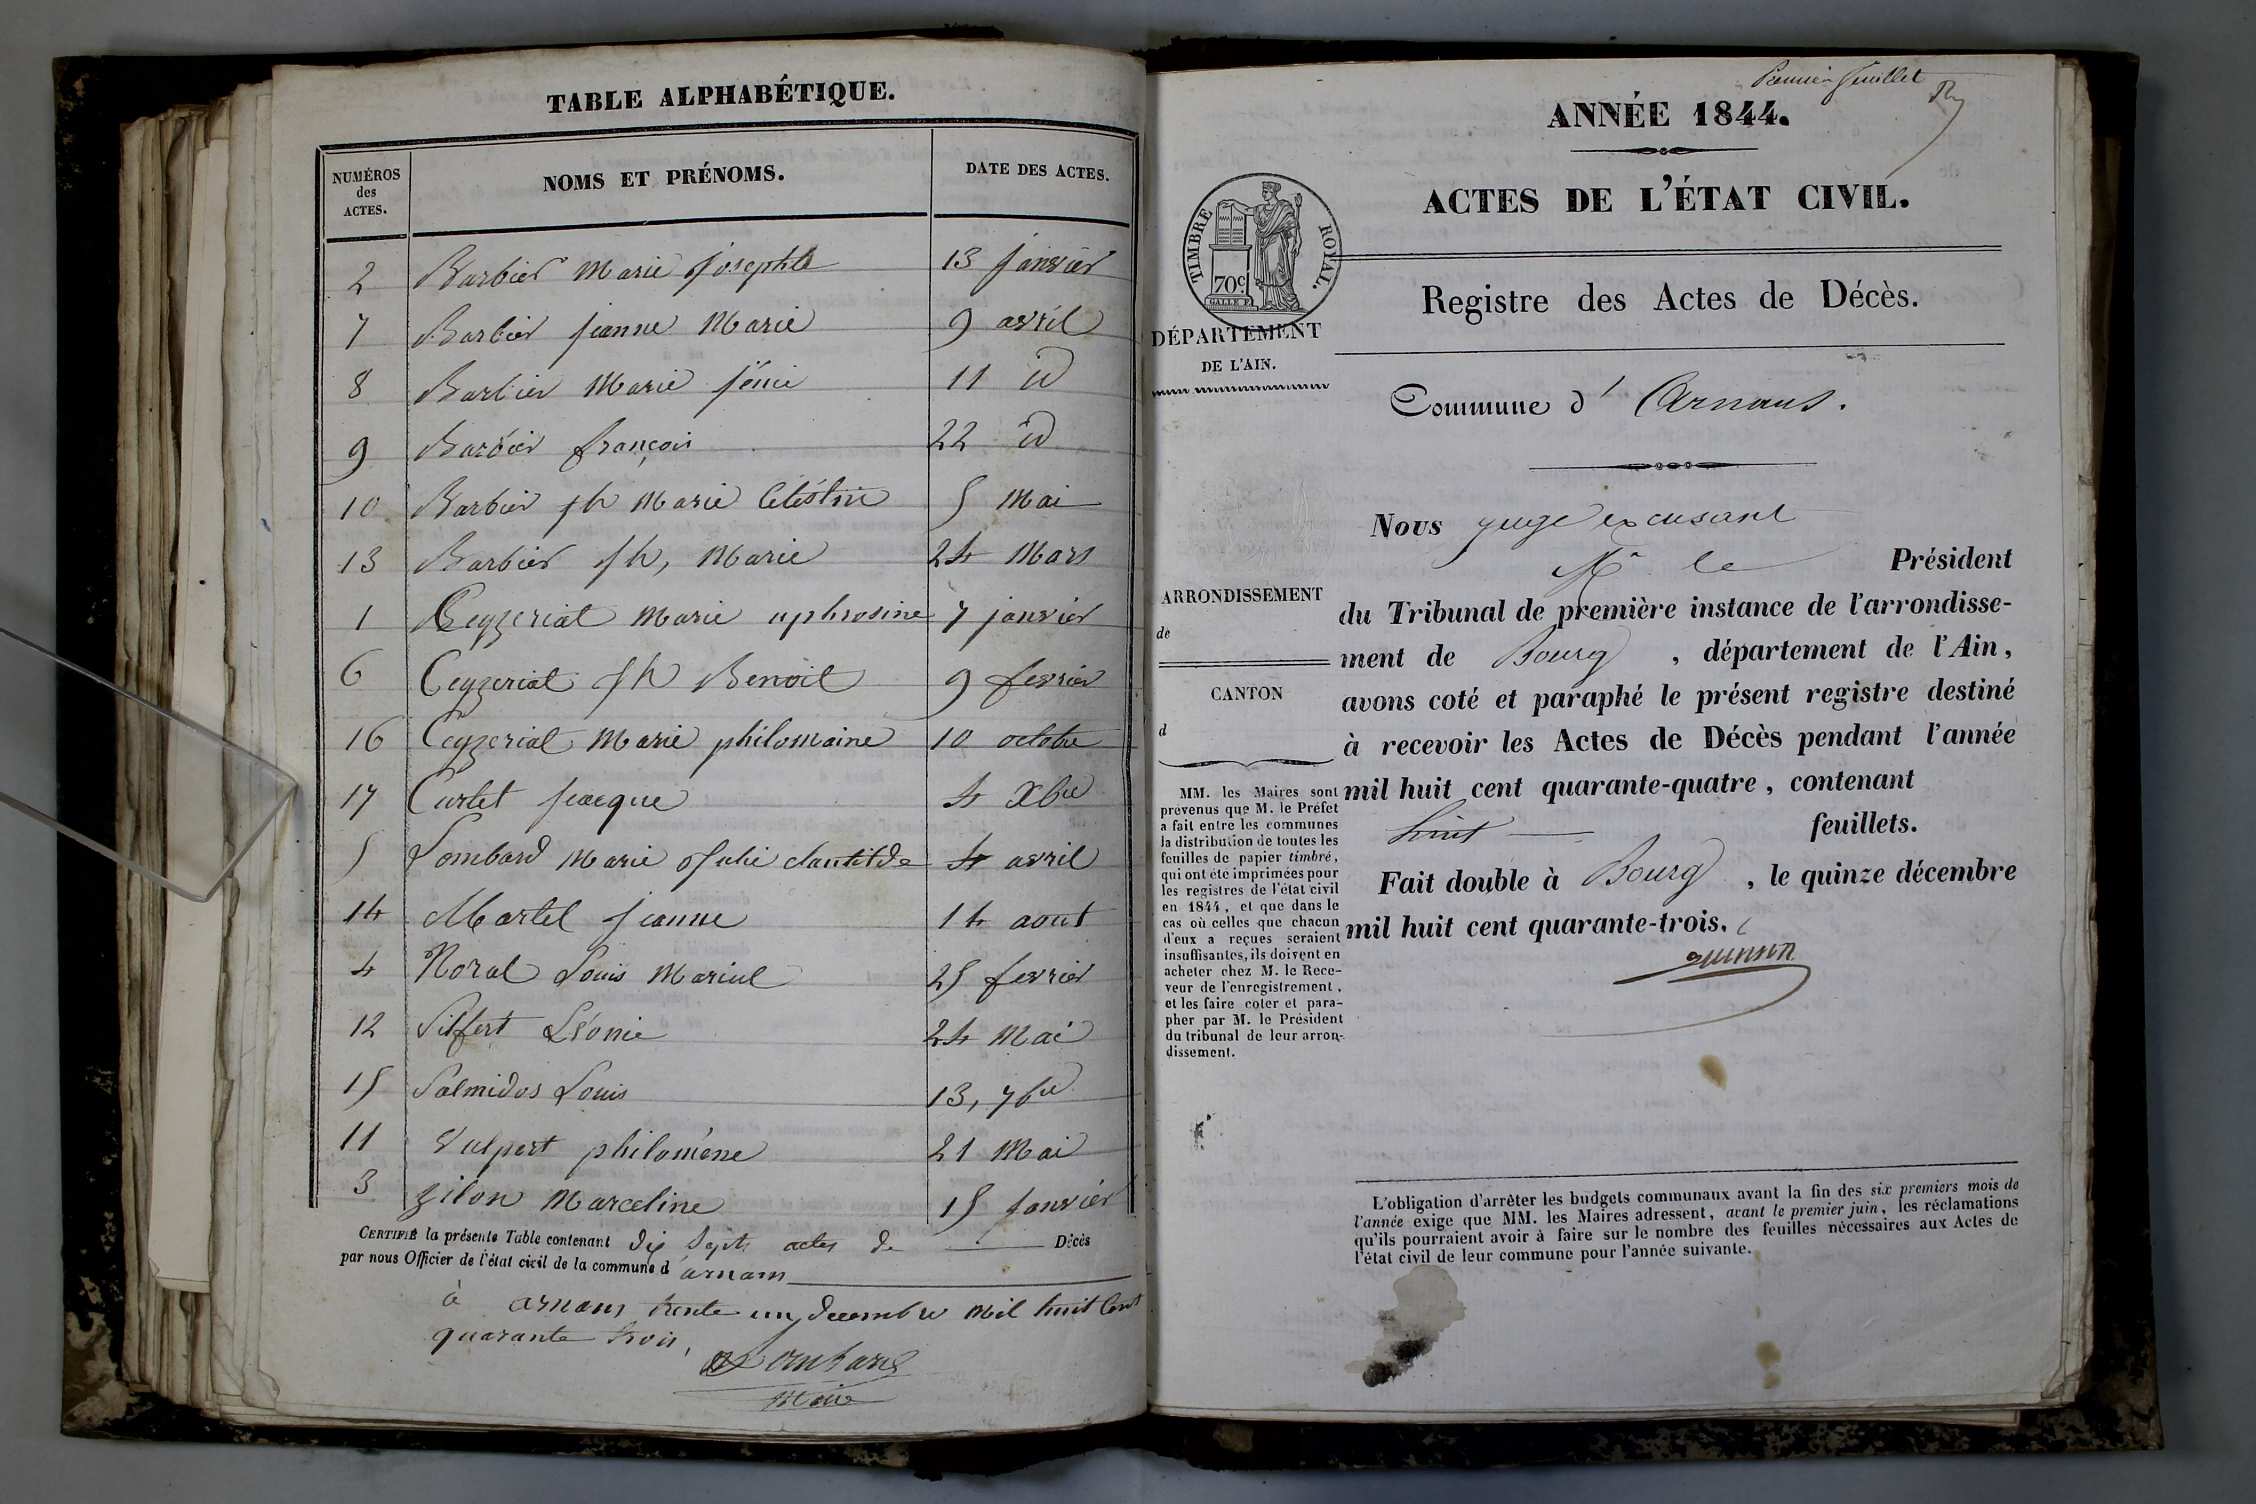 TABLE ALPHABÉTIQUE.
NUMÉROS des ACTES. NOMS ET PRÉNOMS. DATE DES ACTES.
2 Barbier Marie Josephte 13 janvier
7 Barbier jeanne Marie 9 avril
8 Barbier Marie 11 id
9 Barbier françois 22 id
10 Barbier jh Marie Célestin 5 Mai
13 Barbier jh, Marie 24 Mars
1 Ceyzeriat Marie uphrosine 7 janvier
6 Ceyzeriat jh Benoit 9 fevrier
16 Ceyzeriat Marie philomaine 10 octobre
17 Curlet jacque 4 Xbre
5 Lombard Marie Julie clautilde 4 avril
14 Martel jeanne 14 aout
4 Noral Louis Mariul 25 fevrier
12 Silfert Léonie 24 Mai
15 Salmidos Louis 13, 7bre
11 Valpert philomène 21 Mai
3 zilon Marceline 15 janvier
CERTIFIÉ la présente Table contenant dix Septs actes de Décès
par nous Officier de l'état civil de la commune d arnans
à arnans trente un decembre mil huit Cent
quarante trois,
Lombard
Maire
Premier feuillet
ANNÉE 1844.
ACTES DE L'ÉTAT CIVIL.
TIMBRE ROYAL.
70c.
Registre des Actes de Décès.
DÉPARTEMENT
DE L'AIN.
Commune d' Arnans.
Nous juge excusant
Mr le Président
du Tribunal de première instance de l'arrondisse-
ment de Bourg, département de l'Ain,
avons coté et paraphé le présent registre destiné
à recevoir les Actes de Décès pendant l'année
mil huit cent quarante-quatre, contenant
huit feuillets.
Fait double à Bourg, le quinze décembre
mil huit cent quarante-trois.
ARRONDISSEMENT
de
CANTON
d
MM. les Maires sont
prévenus que M. le Préfet
a fait entre les communes
la distribution de toutes les
feuilles de papier timbré,
qui ont été imprimées pour
les registres de l'état civil
en 1844, et que dans le
cas où celles que chacun
d'eux a reçues seraient
insuffisantes, ils doivent en
acheter chez M. le Rece-
veur de l'enregistrement,
et les faire coter et para-
pher par M. le Président
du tribunal de leur arron-
dissement.
L'obligation d'arrêter les budgets communaux avant la fin des six premiers mois de
l'année exige que MM. les Maires adressent, avant le premier juin, les réclamations
qu'ils pourraient avoir à faire sur le nombre des feuilles nécessaires aux Actes de
l'état civil de leur commune pour l'année suivante.